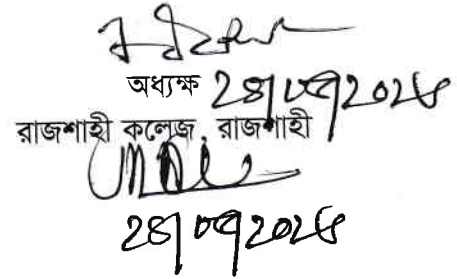 অধ্যক্ষ ২৪|০৭|২০২৪
রাজশাহী কলেজ, রাজশাহী
২৪|০৭|২০২৪